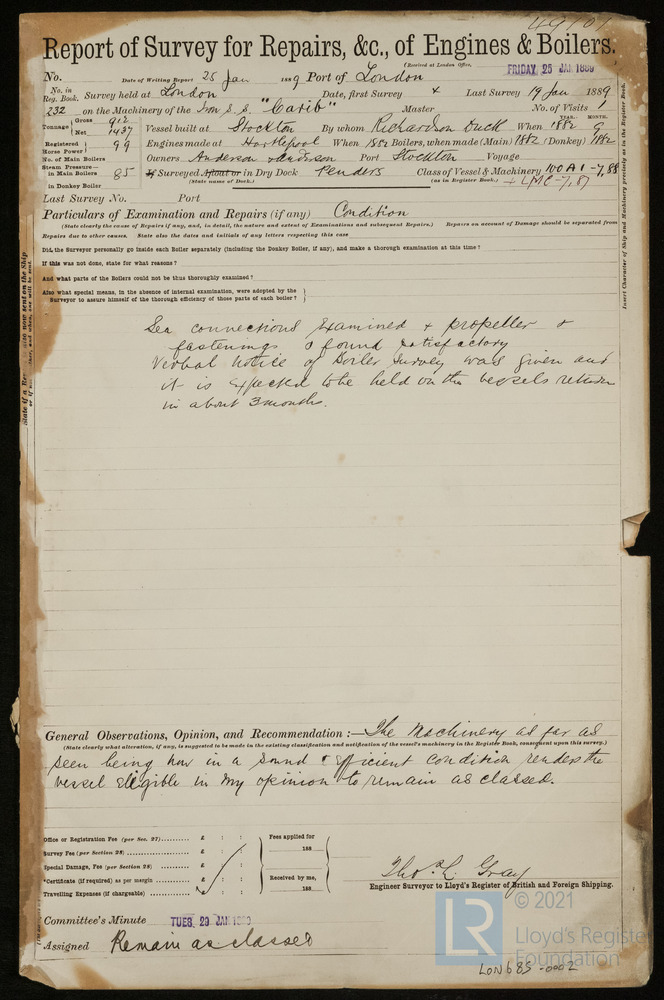 Report of Survey for Repairs, &c., of Engines & Boilers.
(Received at London Office,
No. Date of Writing Report 25 Jan 1889 Port of London FRIDAY 25 JAN 1889
No. in Reg. Book. Survey held at London Date, first Survey Last Survey 19 Jan 1889
232 on the Machinery of the Iron S. S. "Carib" Master No. of Visits 1
Tonnage Gross 912 Net 1437 Vessel built at Stockton By whom Richardson Duck When YEAR. 1882 MONTH. 9
Registered Horse Power 99 Engines made at Hartlepool When 1882 Boilers, when made (Main) 1882 (Donkey) 1882
No. of Main Boilers Owners Anderson Anderson Port Stockton Voyage
Steam Pressure in Main Boilers 85 If Surveyed Afloat or in Dry Dock Class of Vessel & Machinery 100 A1 -7,88
in Donkey Boiler (State name of Dock.) (as in Register Book.) + LMC -7,87
Last Survey No. Port
Particulars of Examination and Repairs (if any) Condition
(State clearly the cause of Repairs if any, and, in detail, the nature and extent of Examinations and subsequent Repairs.) Repairs on account of Damage should be separated from
Repairs due to other causes. State also the dates and initials of any letters respecting this case
Did the Surveyor personally go inside each Boiler separately (including the Donkey Boiler, if any), and make a thorough examination at this time?
If this was not done, state for what reasons?
And what parts of the Boilers could not be thus thoroughly examined?
Also what special means, in the absence of internal examination, were adopted by the
Surveyor to assure himself of the thorough efficiency of those parts of each boiler?
Sea connections examined & propeller &
fastenings & found satisfactory
Verbal notice of Boiler Survey was given and
it is expected to be held on the vessels return
in about 3 months.
Insert Character of Ship and Machinery precisely as in the Register Book.
General Observations, Opinion, and Recommendation :— The Machinery as far as
(State clearly what alteration, if any, is suggested to be made in the existing classification and notification of the vessel's machinery in the Register Book, consequent upon this survey.)
seen being now in a sound & efficient condition renders the
vessel eligible in my opinion to remain as classed.
Office or Registration Fee (per Sec. 27) £ : : Fees applied for
Survey Fee (per Section 28) £ : : 188
Special Damage, Fee (per Section 28) £ : :
*Certificate (if required) as per margin £ : : Received by me,
Travelling Expenses (if chargeable) £ : : 188
Thos. L. Gray
Engineer Surveyor to Lloyd's Register of British and Foreign Shipping.
Committee's Minute TUES. 29 JAN 1889
Assigned Remain as classed
© 2021
LR Lloyd's Register
Foundation
LON685-0002